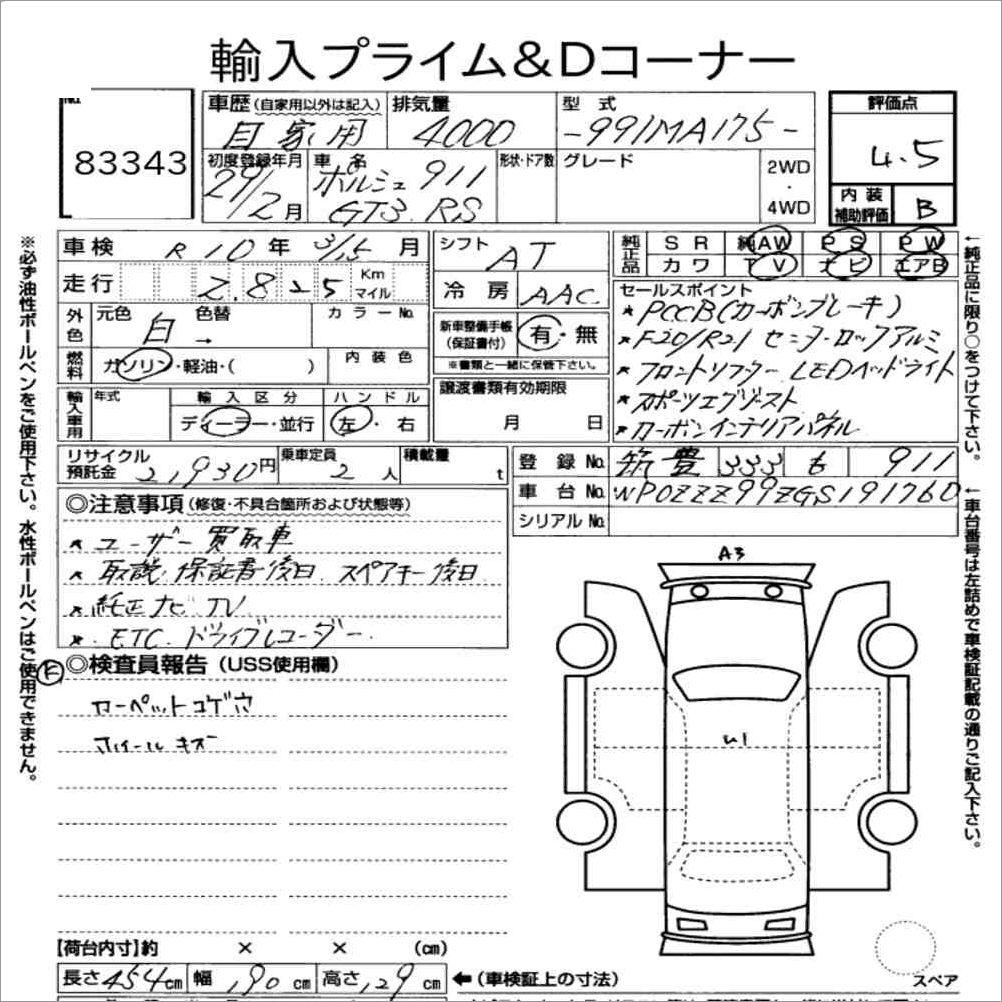 輸入プライム&Dコーナー
83343
車歴(自家用以外は記入) 排気量 型式 評価点
自家用 4000 -991MA175- 4.5
初度登録年月 車名 形状・ドア数 グレード 2WD・4WD 内装補助評価 B
29/2月 ポルシェ 911
GT3 RS
車検 R10年3/15月 シフト AT 純正品 SR 純AW PS PW
カワ TV ナビ エアB
走行 2.825 Km マイル 冷房 AAC
セールスポイント
*PCCB(カーボンブレーキ)
*F20/R21 センターロックアルミ
*フロントリフター LEDヘッドライト
*スポーツエグゾースト
*カーボンインテリアパネル
外色 元色 白 → 色替 カラーNo.
新車整備手帳(保証書付) 有・無
※書類と一緒に保管下さい。
燃料 ガソリン・軽油・( ) 内装色
譲渡書類有効期限
月 日
輸入車用 年式 輸入区分 ハンドル
ディーラー・並行 左・右
リサイクル預託金 21,930円 乗車定員 2人 積載量 t
登録No. 筑豊 333 も 911
車台No. WP0ZZZ99ZGS191760
シリアルNo.
◎注意事項(修復・不具合箇所および状態等)
*ユーザー買取車
*取説・保証書後日 スペアキー後日
*純正ナビ TV
*ETC ドライブレコーダー
◎検査員報告(USS使用欄)
カーペットコゲ有
ホイールキズ
A3
U1
【荷台内寸】約 × × (cm)
長さ454cm 幅190cm 高さ129cm ←(車検証上の寸法)
スペア
※必ず油性ボールペンをご使用下さい。水性ボールペンはご使用できません。
←純正品に限り○をつけて下さい。
←車台番号は左詰めで車検証記載の通りご記入下さい。